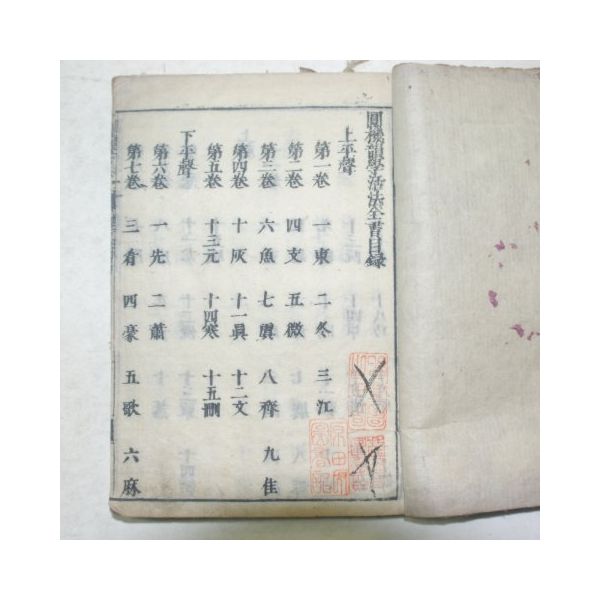 圓機韻學活法全書目録
上平聲
第一卷 一東 二冬 三江
第二卷 四支 五微
第三卷 六魚 七虞 八齊 九佳
第四卷 十灰 十一眞 十二文
第五卷 十三元 十四寒 十五刪
下平聲
第六卷 一先 二蕭
第七卷 三肴 四豪 五歌 六麻